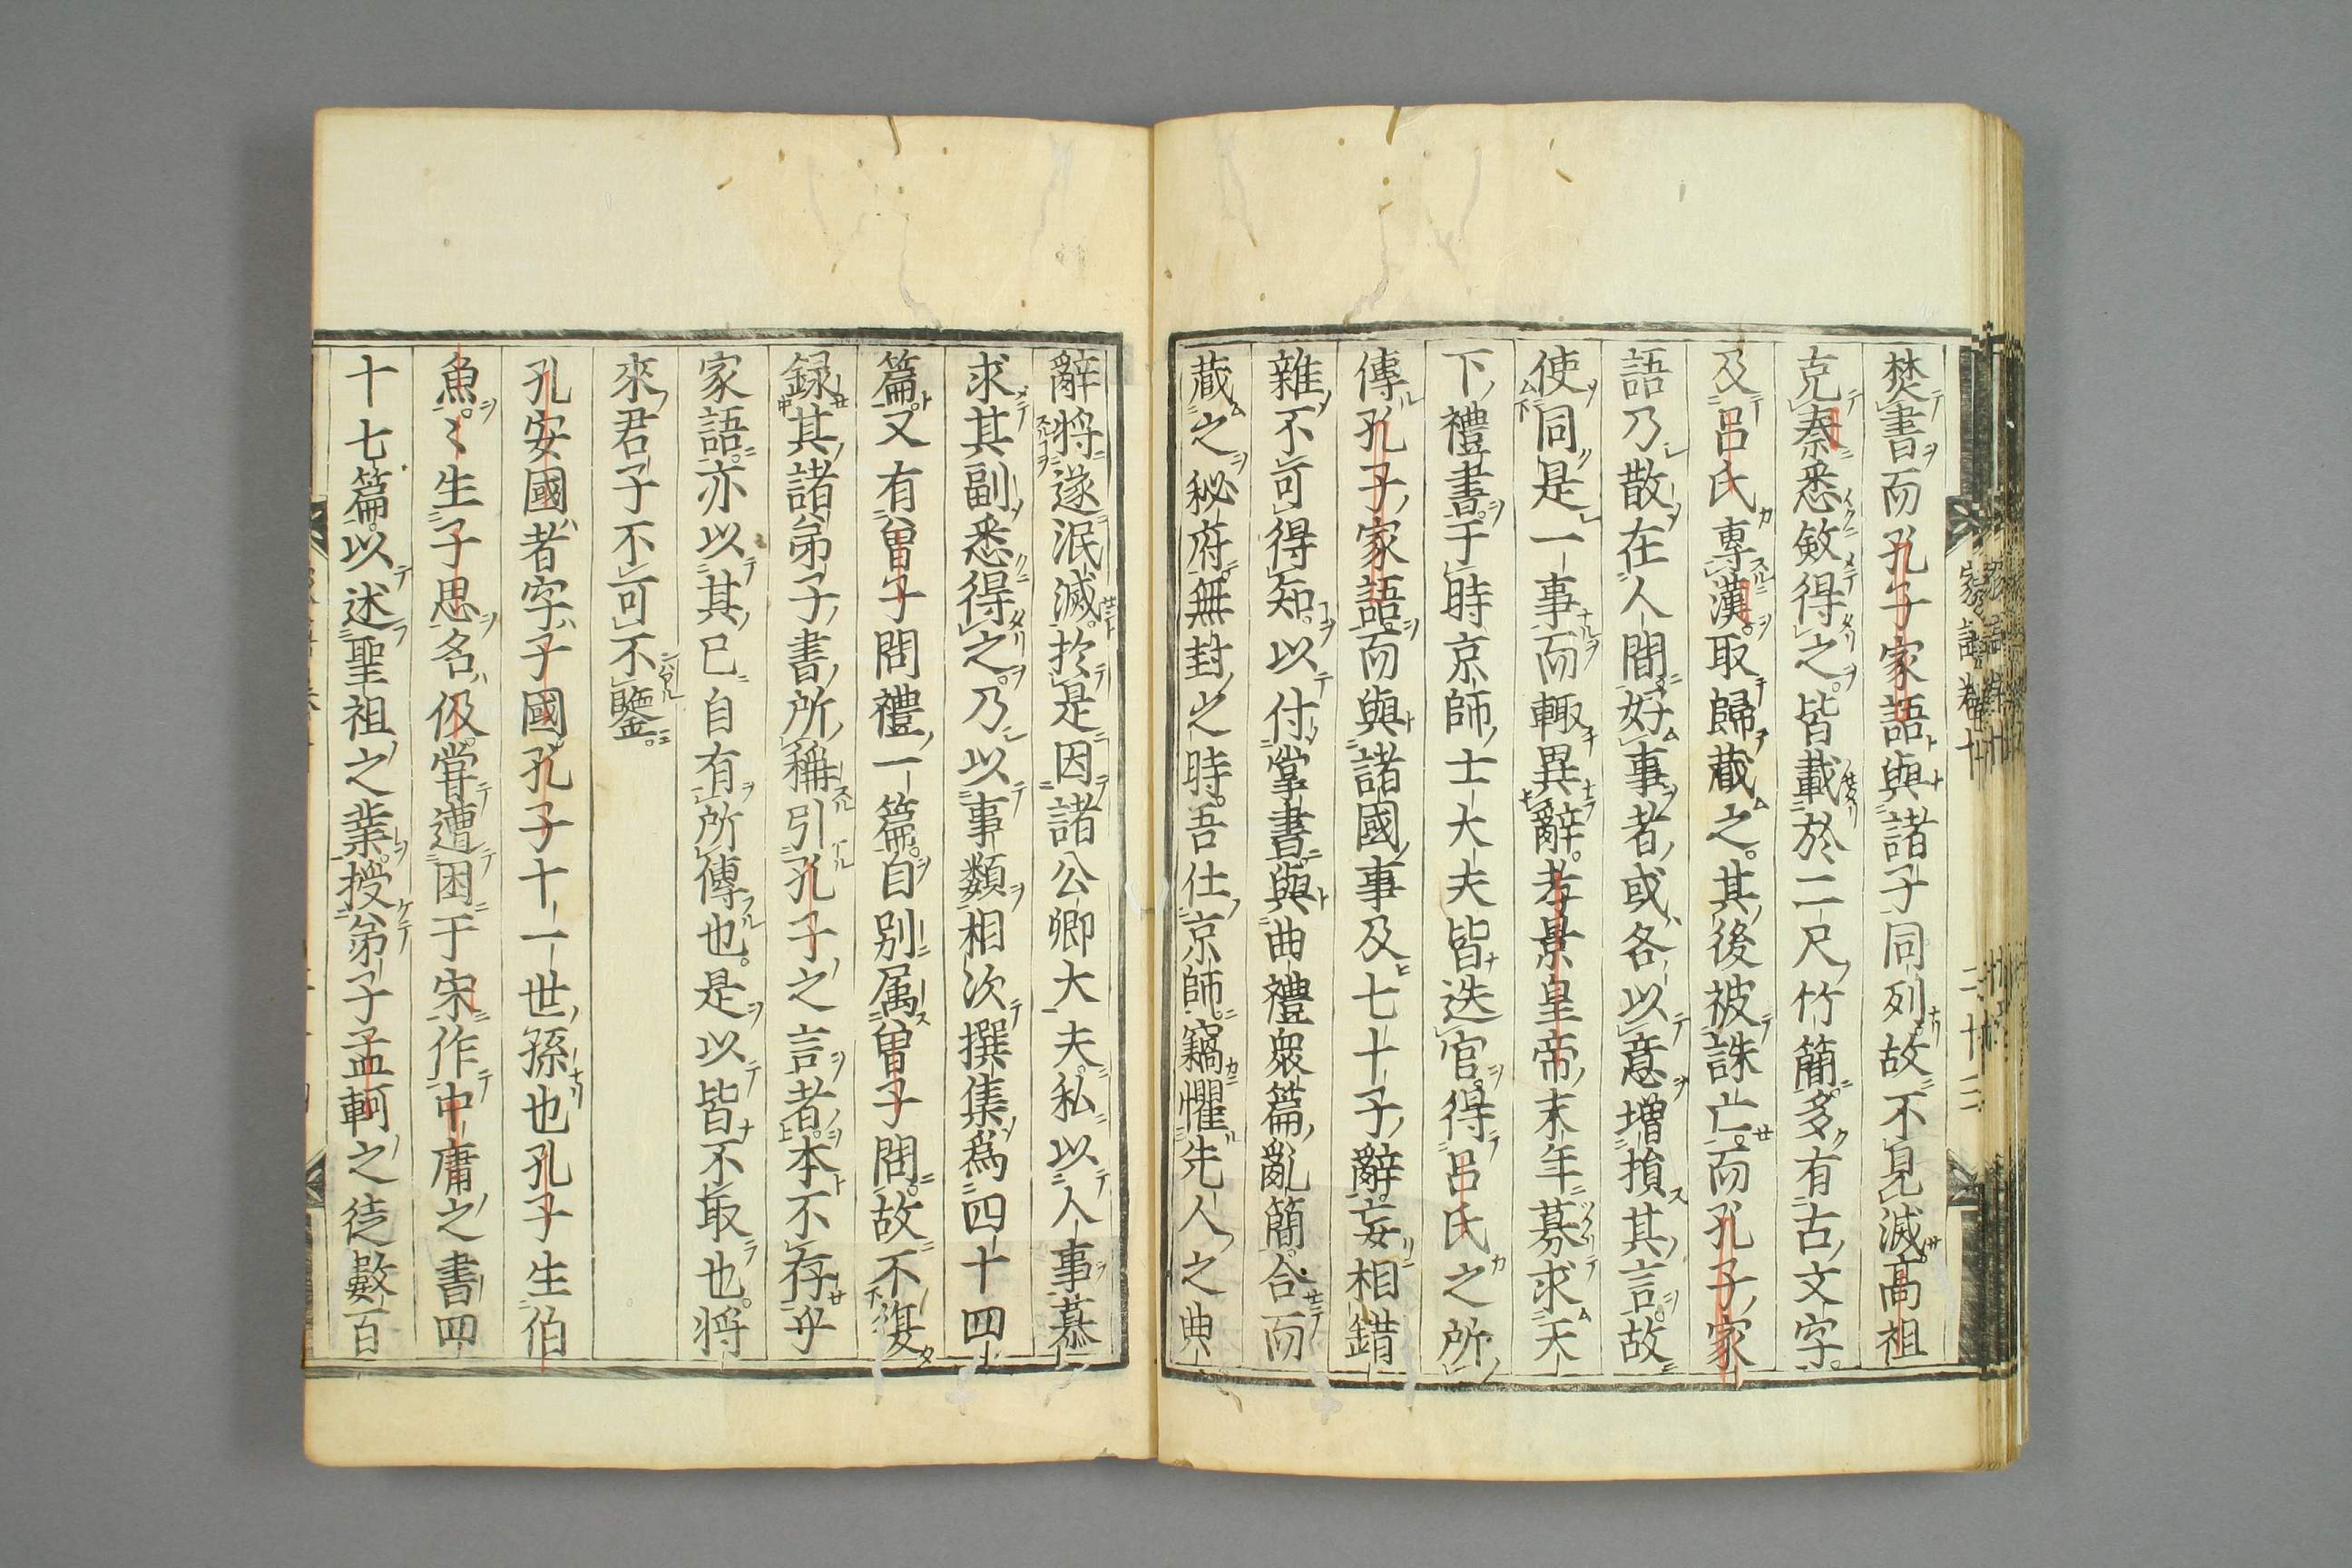 焚書而孔子家語與諸子同列故不見滅高祖
克秦悉斂得之皆載於二尺竹簡多有古文字
及呂氏專漢取歸藏之其後被誅亡而孔子家
語乃散在人間好事者或各以意增損其言故
使同是一事而輙異辭孝景皇帝末年募求天
下禮書于時京師士大夫皆送官得呂氏之所
傳孔子家語而與諸國事及七十子辭妄相錯
雜不可得知以付掌書與曲禮衆篇亂簡合而
藏之秘府無封之時吾仕京師竊懼先人之典
辭將遂泯滅於是因諸公卿大夫私以人事募
求其副悉得之乃以事類相次撰集爲四十四
篇又有曾子問禮一篇自別属曾子問故不復
録其諸弟子書所稱引孔子之言者本不存乎
家語亦以其已自有所傳也是以皆不取也將
來君子不可不鑒
孔安國者字子國孔子十一世孫也孔子生伯
魚〻生子思名伋嘗遭困于宋作中庸之書四
十七篇以述聖祖之業授弟子孟軻之徒數百
家語卷十
二十三